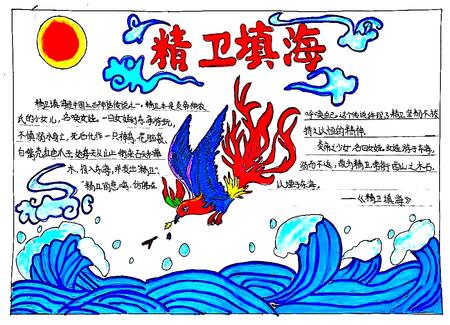 精卫填海
精卫填海是中国上古神话传说之一。精卫本是炎帝神农
氏的小女儿，名唤女娃。一日女娃到东海游玩，
不慎溺水身亡，死后化作一只神鸟，花脑袋，
白嘴壳，红色爪子，
木，投入东海，并发出"精卫"，
"精卫"的
呼唤自己。这个传说体现了精卫坚韧不拔
持之以恒的精神。
炎帝之少女，名曰女娃，女娃游于东海，
溺而不返，故为精卫，常衔西山之木石，
以堙于东海。
——《精卫填海》